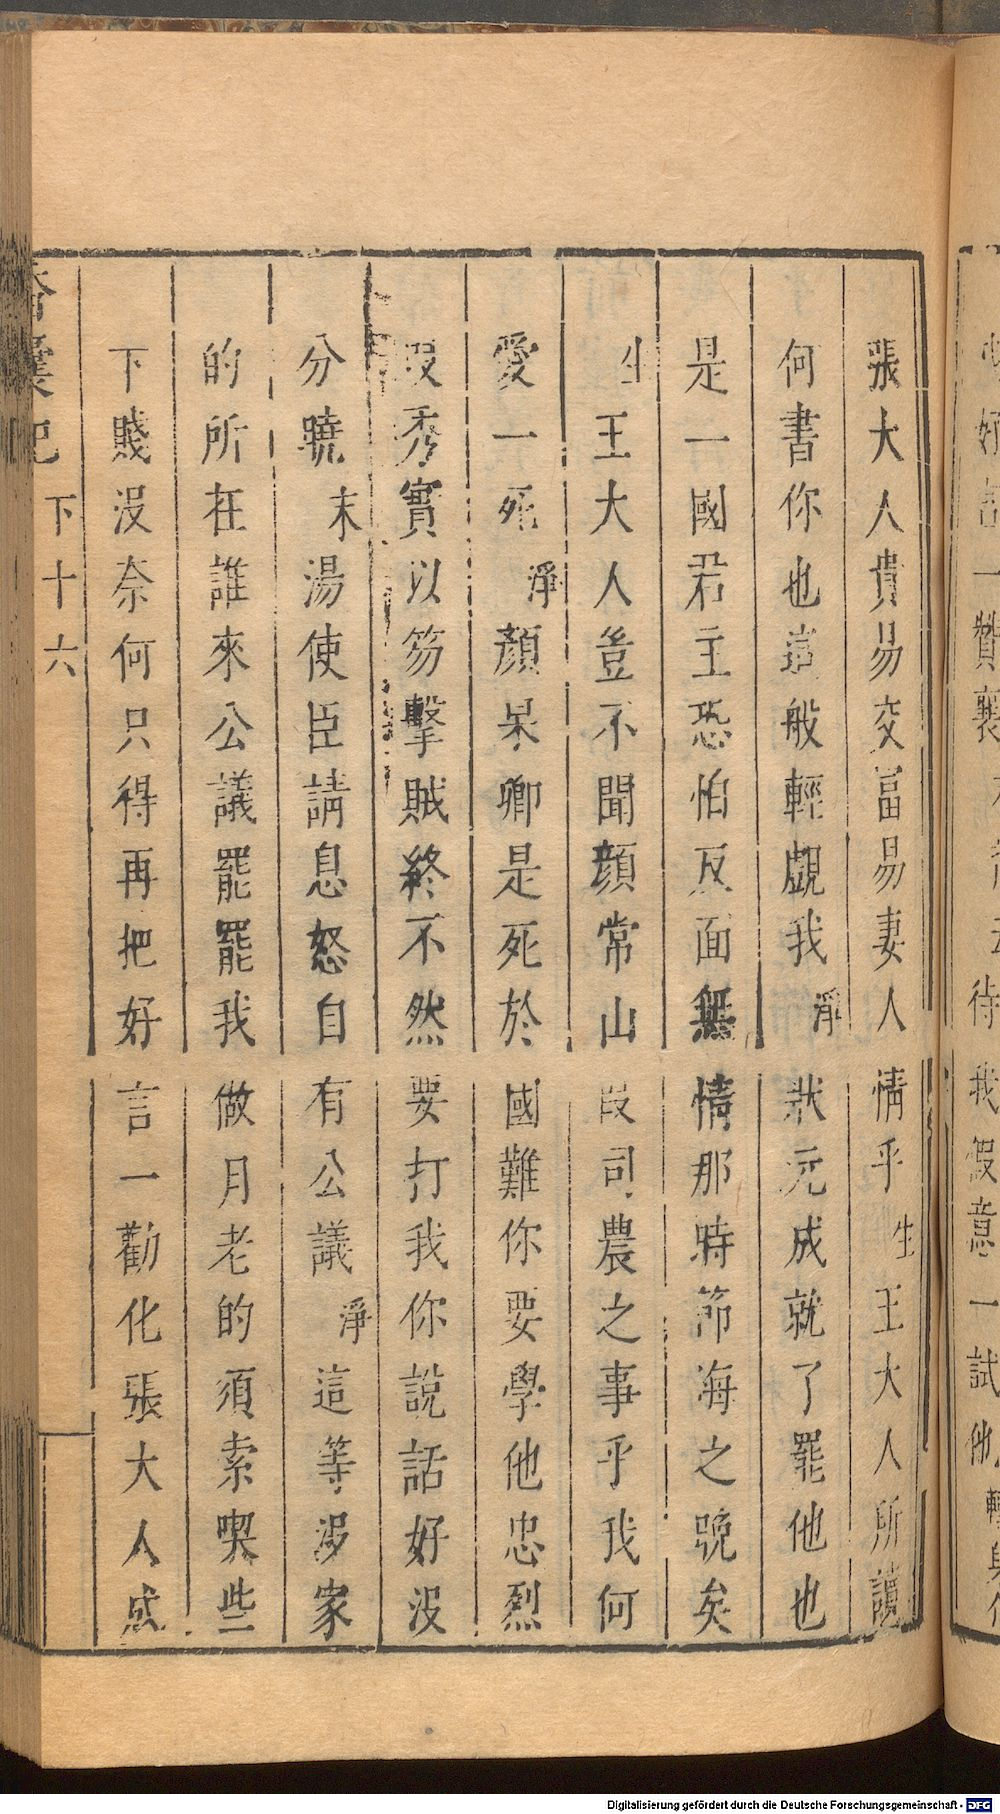 張大人貴易交富易妻人情乎生王大人所讀
何書你也這般輕覷我淨狀元成就了罷他也
是一國君主恐怕反面無情那時節海之晚矣
生王大人豈不聞顔常山段司農之事乎我何
愛一死淨顔杲卿是死於國難你要學他忠烈
段秀實以笏擊賊終不然要打我你說話好没
分曉末湯使臣請息怒自有公議淨這等没家
的所在誰來公議罷罷我做月老的須索喫些
下賤没奈何只得再把好言一勸化張大人成
香囊記 下十六
一贊襄
待我假意一試他
Digitalisierung gefördert durch die Deutsche Forschungsgemeinschaft - DFG